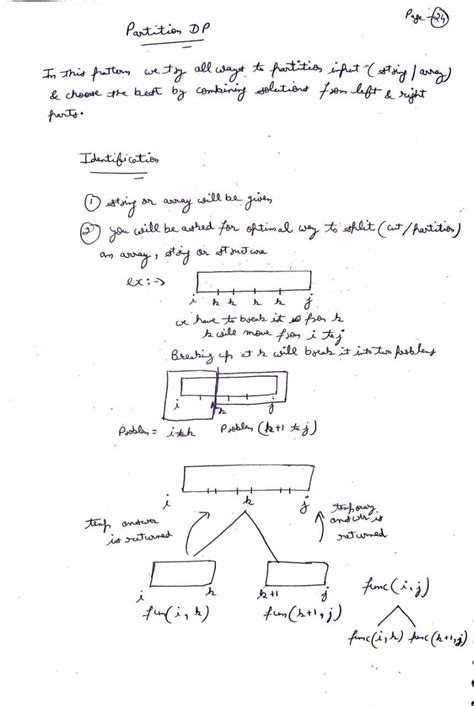 Page - 24
Partition DP
In this pattern we try all ways to partition input (string / array)
& choose the best by combining solutions from left & right
parts.
Identification
① string or array will be given
② you will be asked for optimal way to split (cut / partition)
an array, string or structure
ex :->
i k k k k j
we have to break it from k
k will move from i to j
Breaking up at k will break it into two problems
i k j
Problem = i to k Problem (k+1 to j)
i k j
temp answer
is returned
temporary
answer is
returned
i k k+1 j
fun(i, k) fun(k+1, j)
func(i, j)
func(i, k) func(k+1, j)